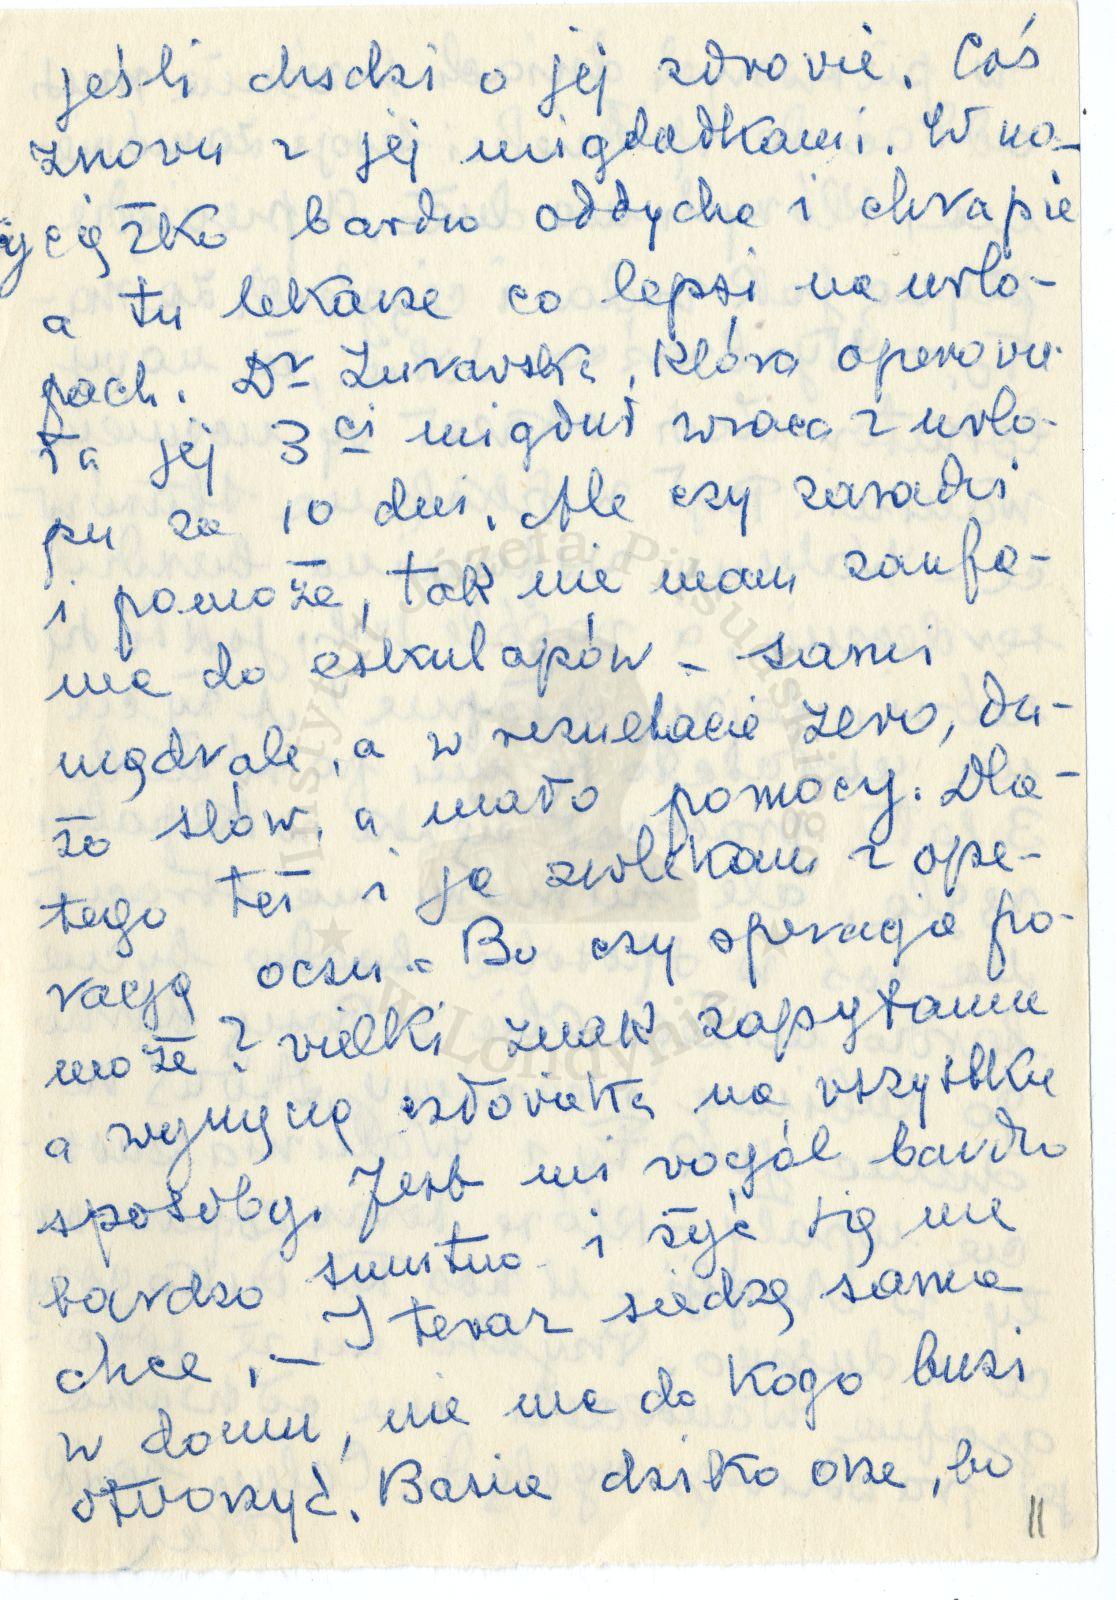 jeśli chodzi o jej zdrowie. Coś
znowu z jej migdałkami. W no-
cy ciężko bardzo oddycha i chrapie
a tu lekarze co lepsi na urlo-
pach. Dr Żurawska, która operowa
ła jej 3ci migdał wraca z urlo-
pu za 10 dni. Ale czy zaradzi
i pomoże, tak nie mam zaufa-
nia do eskulapów - sami
mądrale, a w rezultacie zero, du-
żo słów, a mało pomocy. Dla-
tego też i ja zwlekam z ope-
racją oczu. Bo czy operacja po-
może? wielki znak zapytania
a wycyną człowieka na wszystkie
sposoby. Jest mi wogól bardzo
bardzo smutno i żyć się nie
chce, – I teraz siedzę sama
w domu, nie ma do kogo buzi
otworzyć. Basia dziko orze, bo
11
Instytut Józefa Piłsudskiego
w Londynie